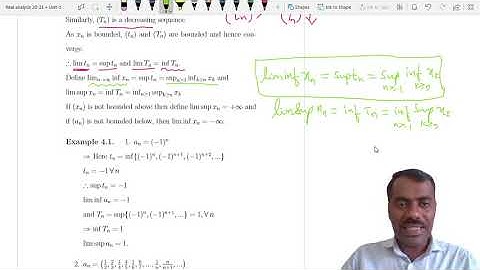 Real analysis 20-21 • Unit-5
Similarly, (Tₙ) is a decreasing sequence
As xₙ is bounded, (tₙ) and (Tₙ) are bounded and hence con-
verge.
∴ lim tₙ = sup tₙ and lim Tₙ = inf Tₙ.
Define limₙ→∞ inf xₙ = sup tₙ = supₙ≥₁ infₖ≥ₙ xₖ and
lim sup xₙ = inf Tₙ = infₙ≥₁ supₖ≥ₙ xₖ
If (xₙ) is not bounded above then define lim sup xₙ = +∞ and
if (aₙ) is not bounded below, then lim inf xₙ = −∞.
lim inf xₙ = sup tₙ = sup n≥1 inf k≥n xₖ
lim Sup xₙ = inf Tₙ = inf n≥1 Sup k≥n xₖ
Example 4.1. 1. aₙ = (−1)ⁿ
⇒ Here tₙ = inf{(−1)ⁿ, (−1)ⁿ⁺¹, (−1)ⁿ⁺², ...}
tₙ = −1 ∀ n
∴ sup tₙ = −1
lim inf aₙ = −1
and Tₙ = sup{(−1)ⁿ, (−1)ⁿ⁺¹, ...} = 1, ∀ n
⇒ inf Tₙ = 1
lim sup aₙ = 1.